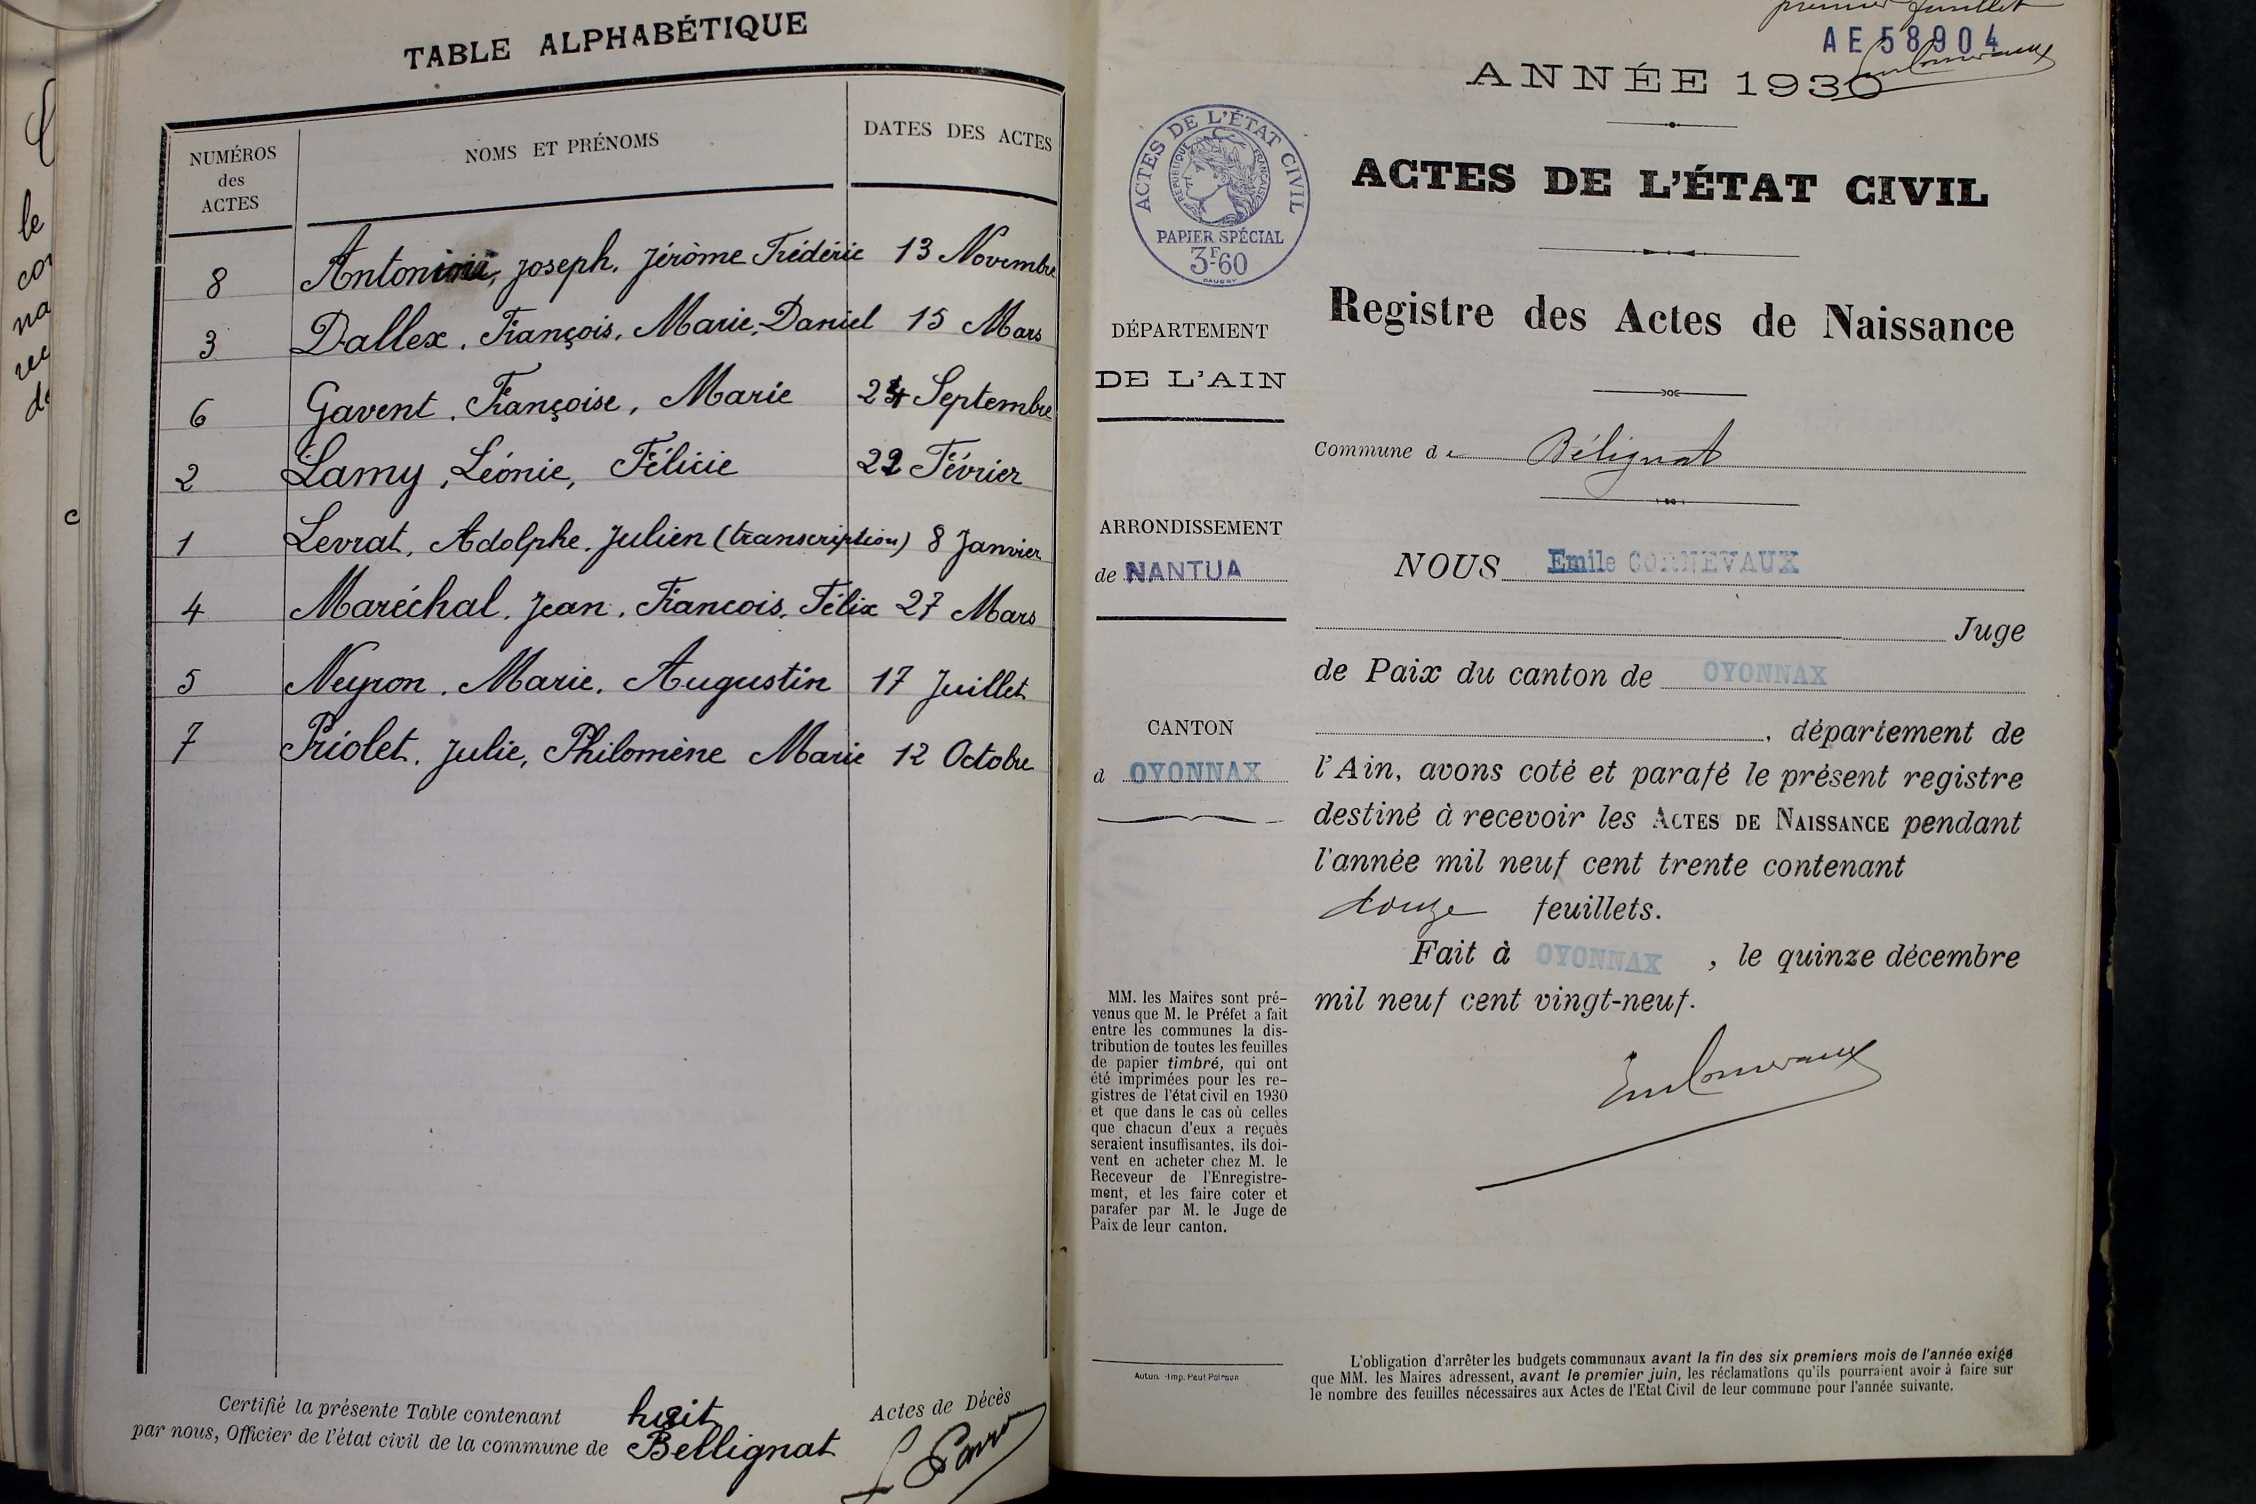 TABLE ALPHABÉTIQUE
NUMÉROS
des
ACTES
NOMS ET PRÉNOMS
DATES DES ACTES
8 Antonini, Joseph, Jérôme Frédéric 13 Novembre
3 Dallex, François, Marie, Daniel 15 Mars
6 Gavent, Françoise, Marie 24 Septembre
2 Lamy, Léonie, Félicie 22 Février
1 Levrat, Adolphe, Julien (transcription) 8 Janvier
4 Maréchal, Jean, Francois, Félix 27 Mars
5 Neyron, Marie, Augustin 17 Juillet
7 Priolet, Julie, Philomène Marie 12 Octobre
Certifié la présente Table contenant huit Actes de Décès
par nous, Officier de l'état civil de la commune de Bellignat
le
na
c
premier feuillet
AE 58904
ANNÉE 1930
ACTES DE L'ÉTAT CIVIL
RÉPUBLIQUE FRANÇAISE
PAPIER SPÉCIAL
3F-60
DAUSSY
ACTES DE L'ÉTAT CIVIL
Registre des Actes de Naissance
DÉPARTEMENT
DE L'AIN
Commune de Bélignat
ARRONDISSEMENT
de NANTUA
NOUS Emile CORNEVAUX
Juge
de Paix du canton de OYONNAX
CANTON
d OYONNAX
, département de
l'Ain, avons coté et parafé le présent registre
destiné à recevoir les ACTES DE NAISSANCE pendant
l'année mil neuf cent trente contenant
douze feuillets.
Fait à OYONNAX, le quinze décembre
mil neuf cent vingt-neuf.
MM. les Maires sont pré-
venus que M. le Préfet a fait
entre les communes la dis-
tribution de toutes les feuilles
de papier timbré, qui ont
été imprimées pour les re-
gistres de l'état civil en 1930
et que dans le cas où celles
que chacun d'eux a reçues
seraient insuffisantes, ils doi-
vent en acheter chez M. le
Receveur de l'Enregistre-
ment, et les faire coter et
parafer par M. le Juge de
Paix de leur canton.
Autun. -Imp. Paul Poirson
L'obligation d'arrêter les budgets communaux avant la fin des six premiers mois de l'année exige
que MM. les Maires adressent, avant le premier juin, les réclamations qu'ils pourraient avoir à faire sur
le nombre des feuilles nécessaires aux Actes de l'Etat Civil de leur commune pour l'année suivante.